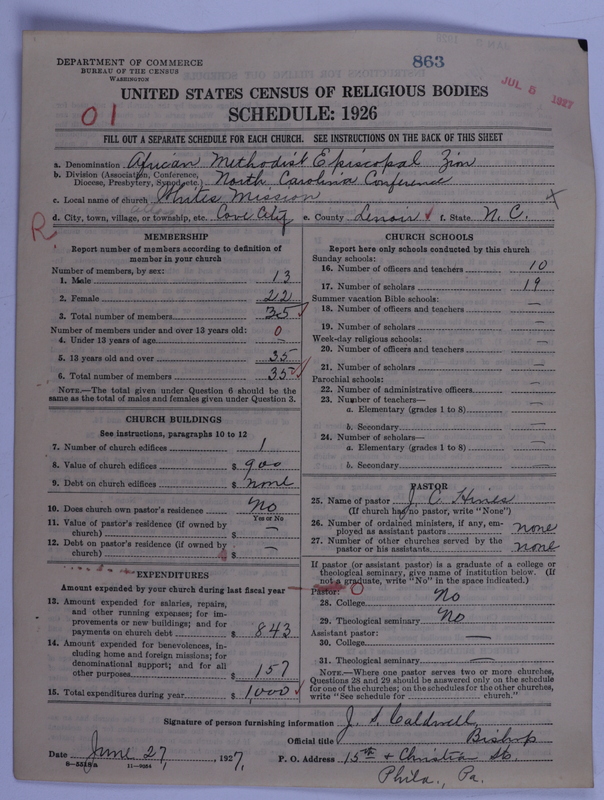 DEPARTMENT OF COMMERCE
BUREAU OF THE CENSUS
WASHINGTON
863
JUL 5 1927
UNITED STATES CENSUS OF RELIGIOUS BODIES
SCHEDULE: 1926
01
FILL OUT A SEPARATE SCHEDULE FOR EACH CHURCH. SEE INSTRUCTIONS ON THE BACK OF THIS SHEET
a. Denomination African Methodist Episcopal Zion
b. Division (Association, Conference, Diocese, Presbytery, Synod, etc.) North Carolina Conference
c. Local name of church Whites Mission x
d. City, town, village, or township, etc. Cove City e. County Lenoir f. State N. C.
R
MEMBERSHIP
Report number of members according to definition of
member in your church
Number of members, by sex:
1. Male 13
2. Female 22
3. Total number of members 35
Number of members under and over 13 years old: 0
4. Under 13 years of age —
5. 13 years old and over 35
6. Total number of members 35
NOTE.—The total given under Question 6 should be
same as the total of males and females given under Question 3.
CHURCH BUILDINGS
See instructions, paragraphs 10 to 12
7. Number of church edifices 1
8. Value of church edifices $ 900
9. Debt on church edifices $ none
10. Does church own pastor's residence No
Yes or No
11. Value of pastor's residence (if owned by
church) $ —
12. Debt on pastor's residence (if owned by
church) $ —
EXPENDITURES
Amount expended by your church during last fiscal year
13. Amount expended for salaries, repairs,
and other running expenses; for im-
provements or new buildings; and for
payments on church debt $ 843
14. Amount expended for benevolences, in-
cluding home and foreign missions; for
denominational support; and for all
other purposes $ 157
15. Total expenditures during year $ 1,000
CHURCH SCHOOLS
Report here only schools conducted by this church
Sunday schools:
16. Number of officers and teachers 10
17. Number of scholars 19
Summer vacation Bible schools:
18. Number of officers and teachers —
19. Number of scholars —
Week-day religious schools:
20. Number of officers and teachers —
21. Number of scholars —
Parochial schools:
22. Number of administrative officers —
23. Number of teachers—
a. Elementary (grades 1 to 8) —
b. Secondary —
24. Number of scholars—
a. Elementary (grades 1 to 8) —
b. Secondary —
PASTOR
25. Name of pastor J. C. Hines
(If church has no pastor, write "None")
26. Number of ordained ministers, if any, em-
ployed as assistant pastors none
27. Number of other churches served by the
pastor or his assistants none
If pastor (or assistant pastor) is a graduate of a college or
theological seminary, give name of institution below. (If
not a graduate, write "No" in the space indicated.)
Pastor: 0
28. College No
29. Theological seminary No
Assistant pastor:
30. College —
31. Theological seminary —
NOTE.—Where one pastor serves two or more churches,
Questions 28 and 29 should be answered only on the schedule
for one of the churches; on the schedules for the other churches,
write "See schedule for church."
Signature of person furnishing information J. S. Caldwell
Official title Bishop
Date June 27, 1927, P. O. Address 15th & Christian Sts.
8-5518a 11-9264
Phila., Pa.